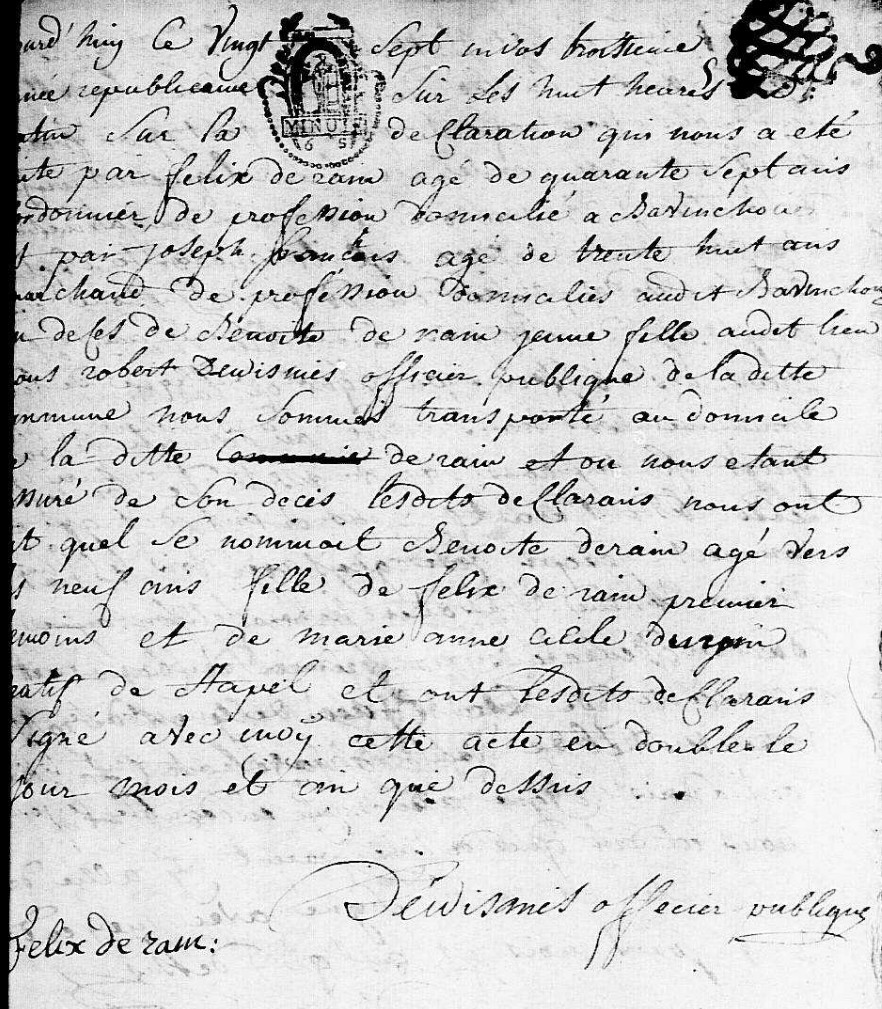 ourd'huy Ce Vingt Sept nivos troisieme
née republicaine sur Les huit heures
atin sur la de Claration qui nous a eté
ite par felix de ram agé de quarante Sept ans
ordonnier de profession domicilié a Bavinchove
t par joseph francois agé de trente huit ans
marchand de profession domicilies audit Bavinchov
u deses de Benoite de rain jeune fille audit lieu
ous robert Dewismes officier publique de la ditte
ommune nous sommes transporté au domicile
e la ditte de rain et ou nous etant
ssuré de son decès lesdits deClarans nous ont
it quel se nommoit Benoite derain agé vers
s neuf ans fille de felix de rain premier
emoins et de marie anne cecile
natif de Stapel et ont lesdits deClarans
signé avec moÿ cette acte en double le
jour mois et an que dessus
Dewismes officier publique
felix de ram: